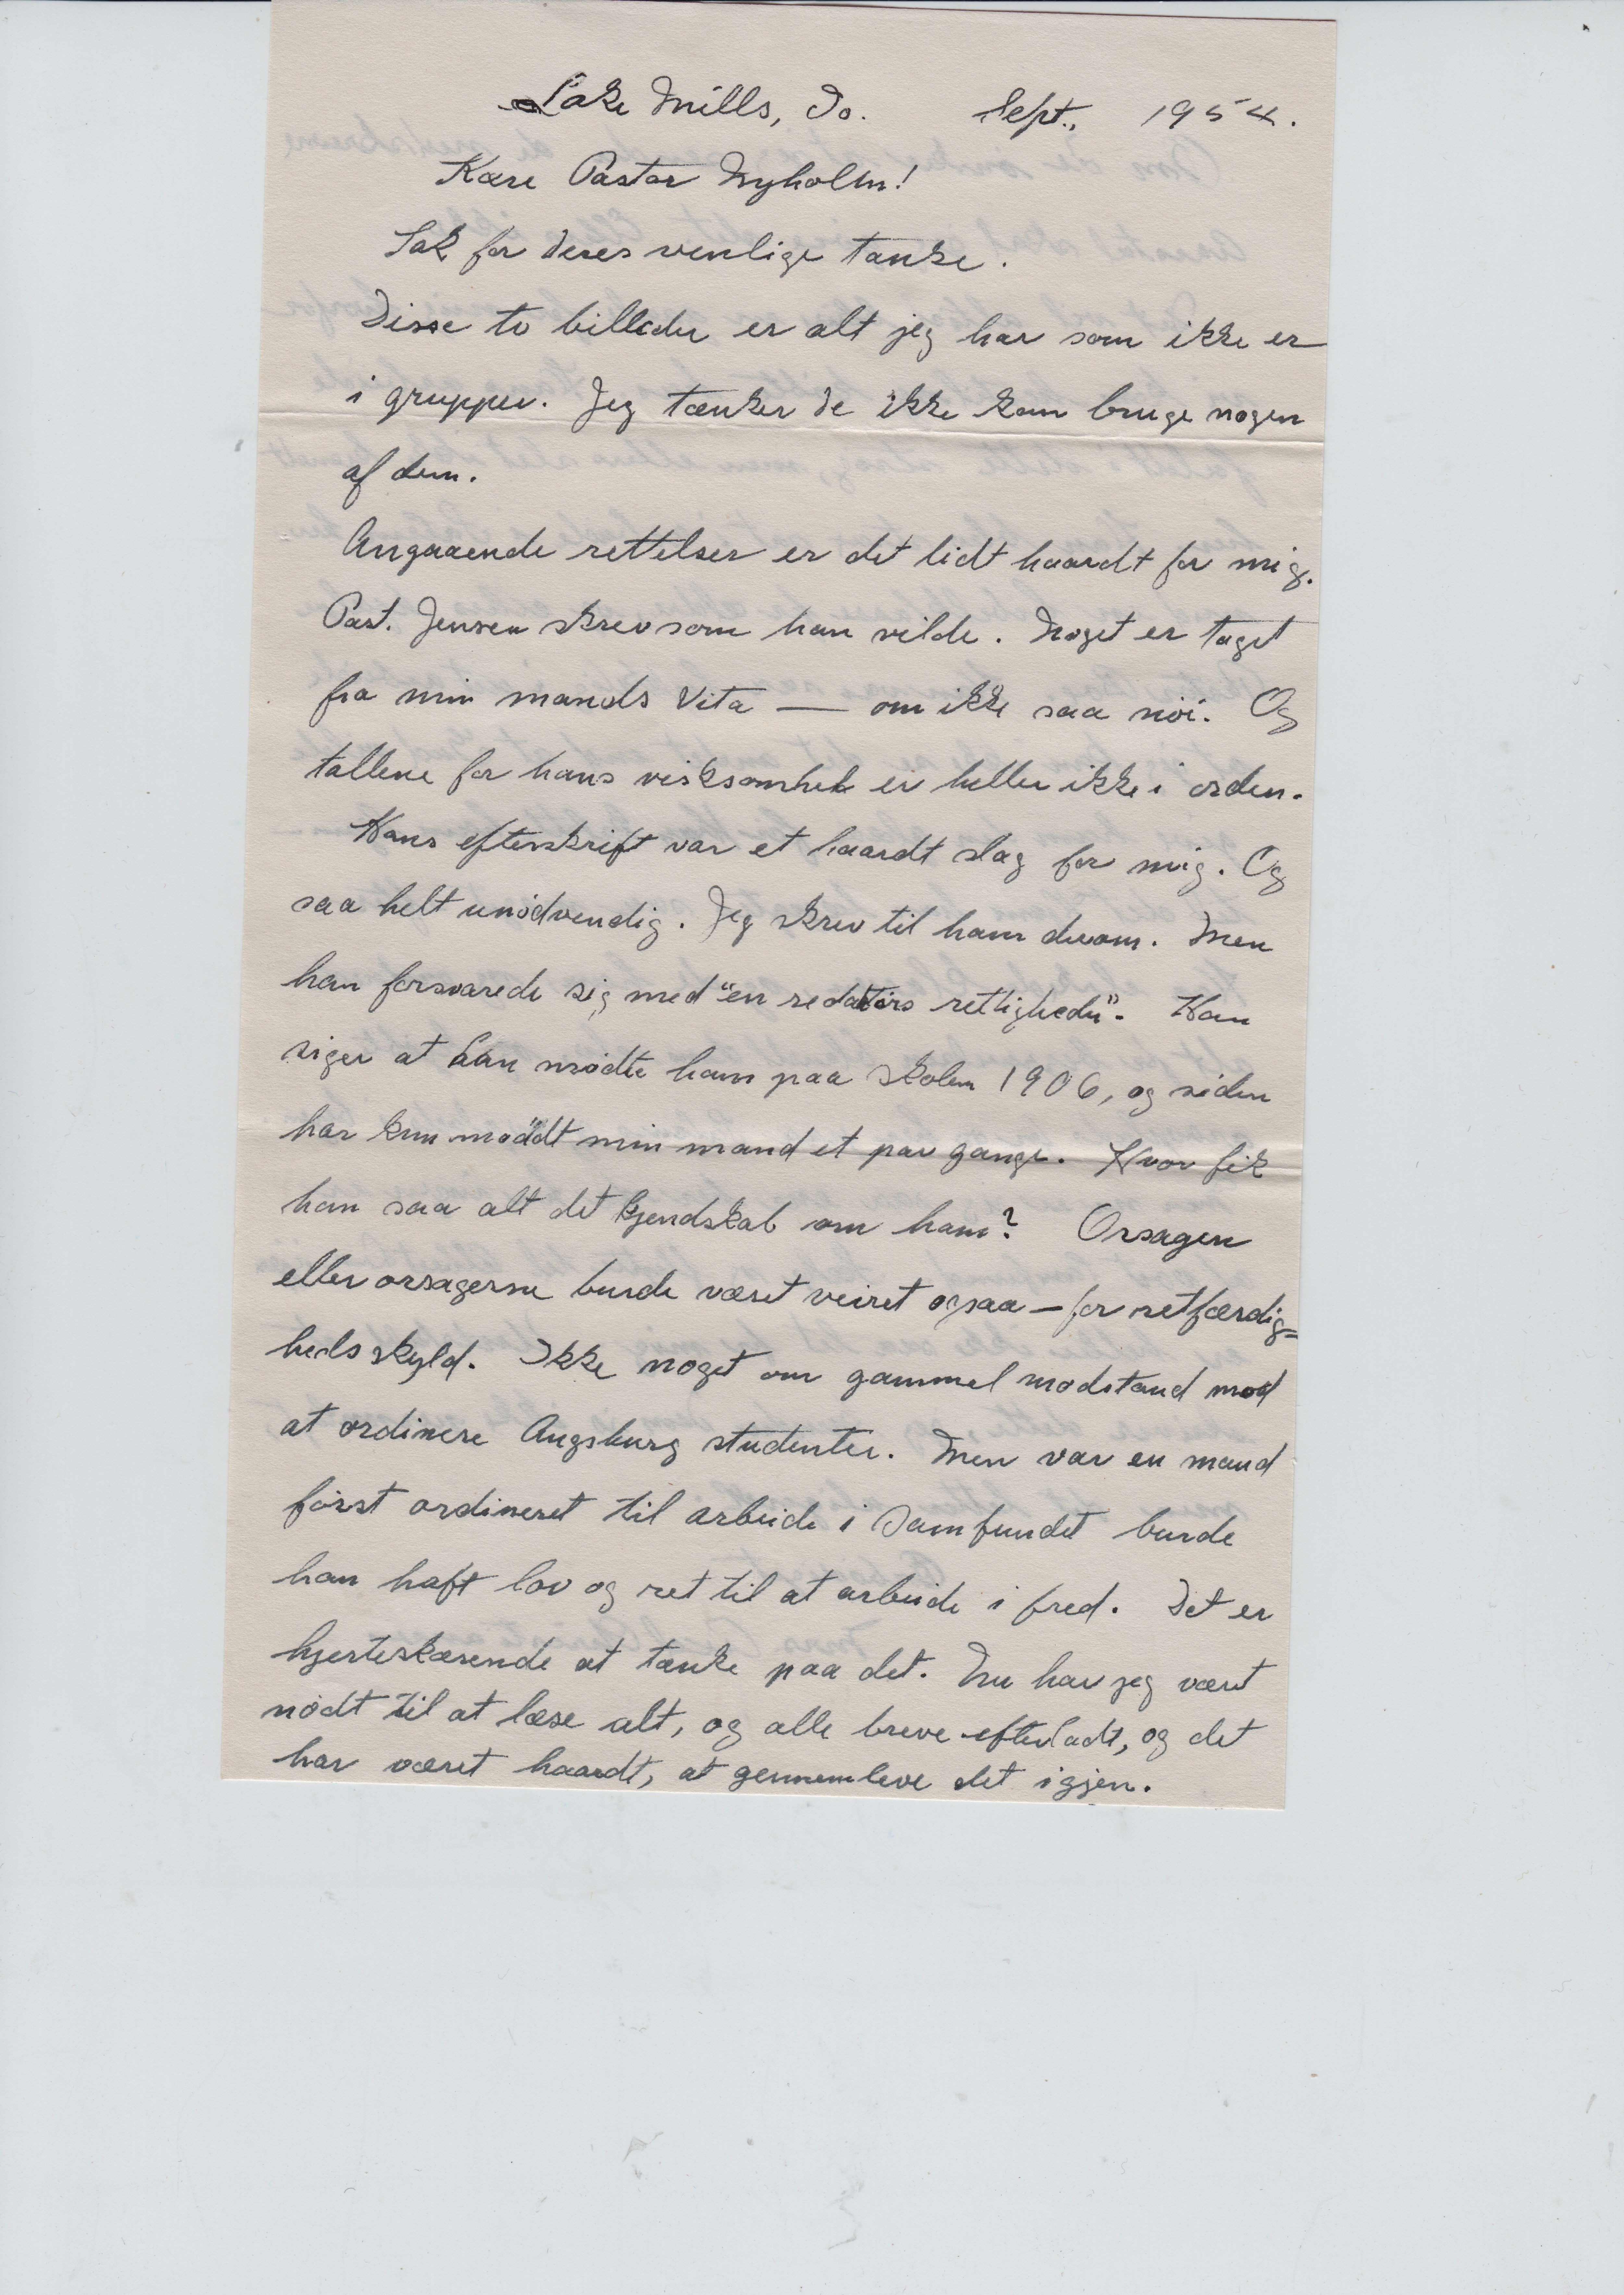 Lake Mills, Io. Sept., 1954.
Kære Pastor Nyholm!
Tak for Deres venlige tanke.
Disse to billeder er alt jeg har som ikke er
i grupper. Jeg tænker De ikke kan bruge nogen
af dem.
Angaaende rettelser er det lidt haardt for mig.
Past. Jensen skrev som han vilde. Noget er taget
fra min mands Vita — om ikke saa nöi. Og
tallene for hans virksomhed er heller ikke i orden.
Hans efterskrift var et haardt slag for mig. Og
saa helt unödvendig. Jeg skrev til ham derom. Men
han forsvarede sig med "en redaktörs rettigheder". Han
siger at han mödte ham paa skolen 1906, og siden
har kun möddt min mand et par gange. Hvor fik
han saa alt det kjendskab om ham? Orsagen
eller orsagerne burde været veiret ogsaa — for retfærdig=
heds skyld. Ikke noget om gammel modstand mod
at ordinere Augsburg studenter. Men var en mand
först ordineret til arbeide i Samfundet burde
han haft lov og ret til at arbeide i fred. Det er
hjerteskærende at tænke paa det. Nu har jeg været
nödt til at læse alt, og alle breve efterladt, og det
har været haardt, at gennemleve det igjen.